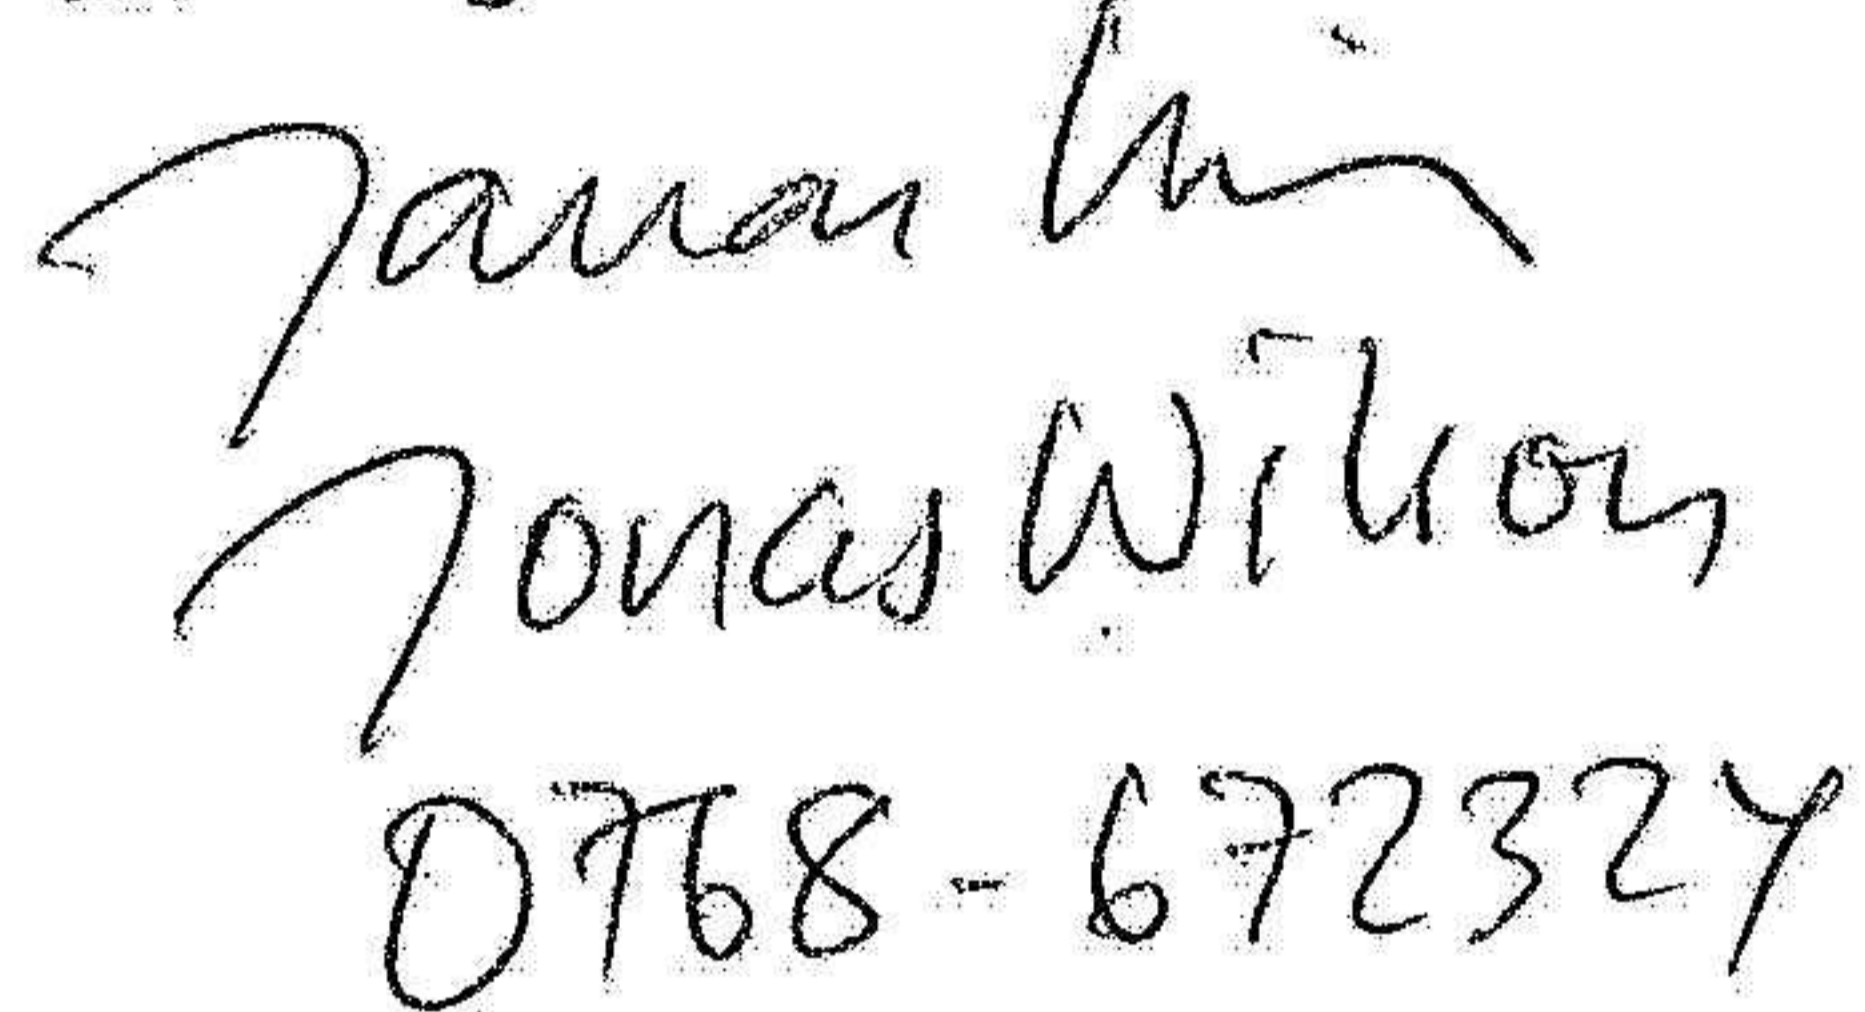 Jonas
Jonas Wilson
0768-672324